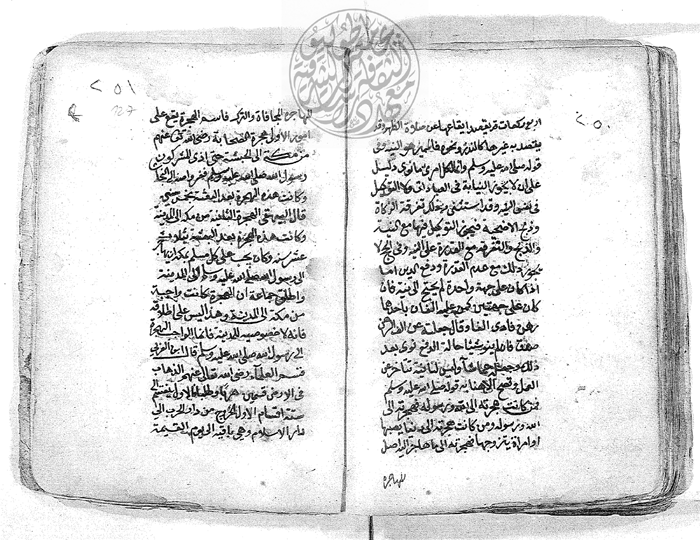 ٢٥٠
اربع ركعات قد يقصد ايقاعها عن صلوة الظهر وقد
يقصد به غيرها كالنذر ونحوه فالمميز هو النية في
قوله صلى الله عليه وسلم وانما لكل امرئ ما نوى دليل
على ان لا يجوز النيابة في العبادات ولا التوكيل
في نفس النية وقد استثنى من ذلك تفرقة الزكاة
وذبح الاضحية فيجوز التوكيل فيهما مع النية
والذبح والتفرقة مع القدرة على النية وفي الحج لا
يجوز ذلك مع عدم القدرة ودفع الدين اما
اذا كان على جهة واحدة لم يحتج الى نية فان
كان على جهتين كمن عليه الفان باحدهما
رهن فادى الفا وقال جعلته عن الف الرهن
صدق فان لم ينو شيئا حالة الدفع نوى بعد
ذلك وجعله عما شاء وليس لنا نية تتأخر عن
العمل وتصح الا هنا قوله صلى الله عليه وسلم
فمن كانت هجرته الى الله ورسوله فهجرته الى
الله ورسوله ومن كانت هجرته الى دنيا يصيبها
او امرأة يتزوجها فهجرته الى ما هاجر اليه اصل
المهاجرة
٢٥١
127
المهاجرة المجافاة والترك فاسم الهجرة يقع على
امور الاول هجرة الصحابة رضي الله عنهم
من مكة الى الحبشة حين اذى المشركون
رسول الله صلى الله عليه وسلم ففروا منه الى النجاشي
وكانت هذه الهجرة بعد البعثة بخمس سنين
قال البيهقي الهجرة الثانية من مكة الى المدينة
وكانت هذه الهجرة بعد البعثة بثلاث
عشر سنة وكان يجب على كل مسلم بمكة ان يهاجر
الى رسول الله صلى الله عليه وسلم الى المدينة
واطلق جماعة ان الهجرة كانت واجبة
من مكة الى المدينة وهذا ليس على اطلاقه
فانه لا خصوصية للمدينة فانما الواجب الهجرة
الى رسول الله صلى الله عليه وسلم قال ابن العربي
قسم العلماء رضي الله تعالى عنهم الذهاب
في الارض قسمين هربا وطلبا فالاول ينقسم الى
ستة اقسام الاول الخروج من دار الحرب الى
دار الاسلام وهي باقية الى يوم القيمة